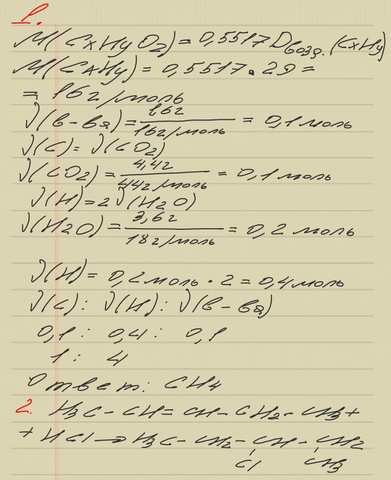 1.
M(CxHyO2) = 0,5517 Dвозд. (CxHy)
M(CxHy) = 0,5517 • 29 =
= 16г/моль
ν(в-ва) = 1,6г / 16г/моль = 0,1 моль
ν(C) = ν(CO2)
ν(CO2) = 4,4г / 44г/моль = 0,1 моль
ν(H) = 2ν(H2O)
ν(H2O) = 3,6г / 18г/моль = 0,2 моль
ν(H) = 0,2 моль • 2 = 0,4 моль
ν(C) : ν(H) : ν(в-ва)
0,1 : 0,4 : 0,1
1 : 4
Ответ: CH4
2. H3C - CH = CH - CH2 - CH3 +
+ HCl → H3C - CH2 - CH - CH2
Cl CH3